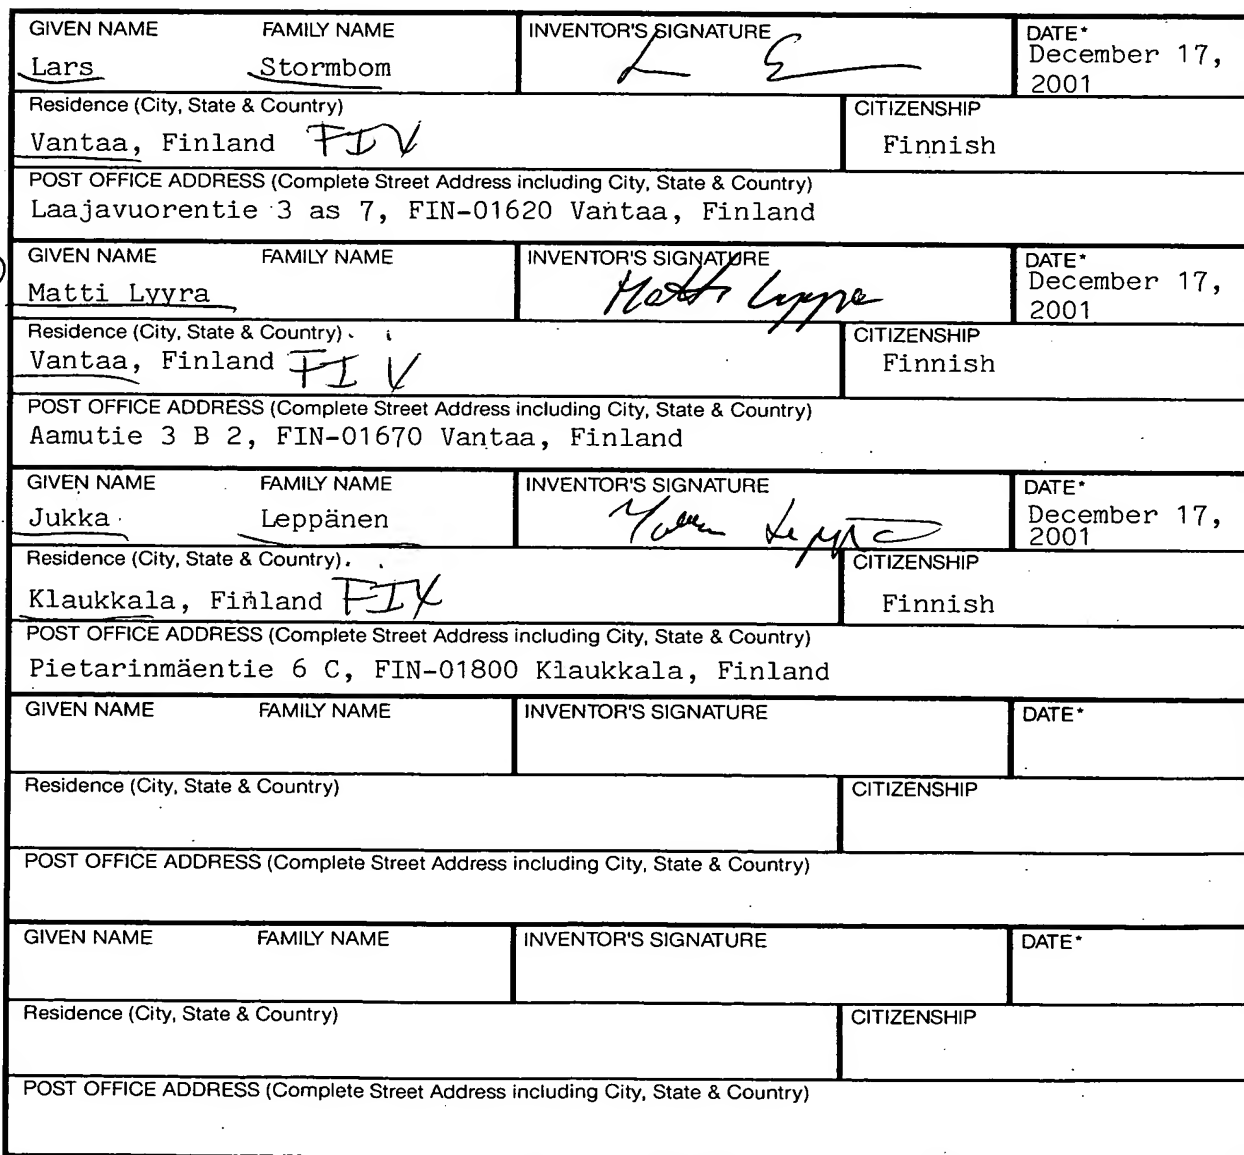 GIVEN NAME FAMILY NAME INVENTOR'S SIGNATURE DATE*
Lars Stormbom December 17,
2001
Residence (City, State & Country) CITIZENSHIP
Vantaa, Finland FIV Finnish
POST OFFICE ADDRESS (Complete Street Address including City, State & Country)
Laajavuorentie 3 as 7, FIN-01620 Vantaa, Finland
GIVEN NAME FAMILY NAME INVENTOR'S SIGNATURE DATE*
Matti Lyyra Matti Lyyra December 17,
2001
Residence (City, State & Country) CITIZENSHIP
Vantaa, Finland FI Finnish
POST OFFICE ADDRESS (Complete Street Address including City, State & Country)
Aamutie 3 B 2, FIN-01670 Vantaa, Finland
GIVEN NAME FAMILY NAME INVENTOR'S SIGNATURE DATE*
Jukka Leppänen December 17,
2001
Residence (City, State & Country) CITIZENSHIP
Klaukkala, Finland FIX Finnish
POST OFFICE ADDRESS (Complete Street Address including City, State & Country)
Pietarinmäentie 6 C, FIN-01800 Klaukkala, Finland
GIVEN NAME FAMILY NAME INVENTOR'S SIGNATURE DATE*
Residence (City, State & Country) CITIZENSHIP
POST OFFICE ADDRESS (Complete Street Address including City, State & Country)
GIVEN NAME FAMILY NAME INVENTOR'S SIGNATURE DATE*
Residence (City, State & Country) CITIZENSHIP
POST OFFICE ADDRESS (Complete Street Address including City, State & Country)